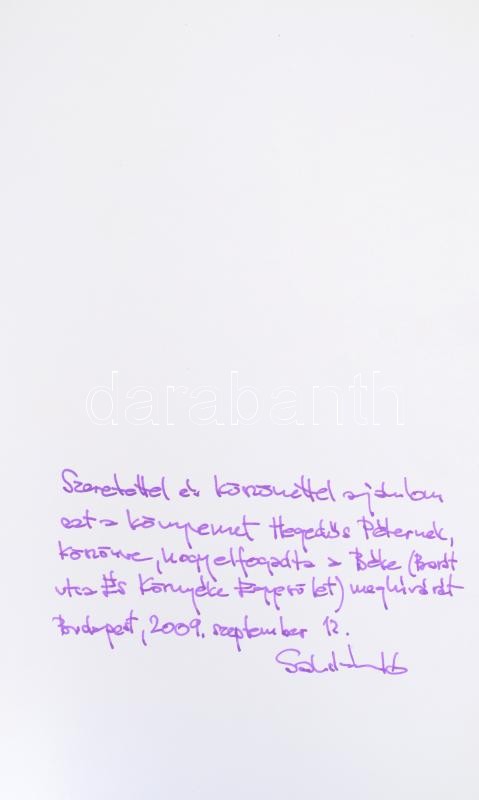 darabanth
Szeretettel és köszönettel ajánlom
ezt a könyvemet Hegedűs Péternek,
köszönve, hogy elfogadta a Béke (Barát
utca És Környéke Egyesület) meghívását
Budapest, 2009. szeptember 12.